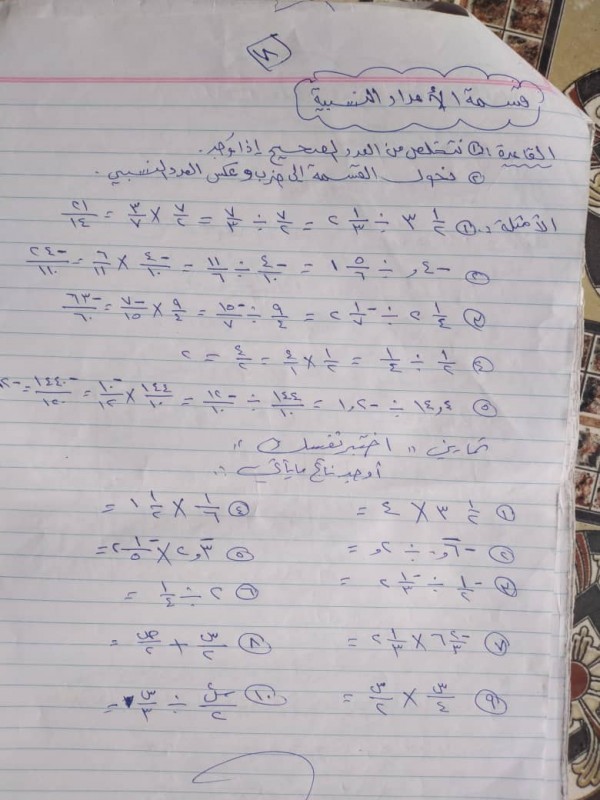 ٧
قسمة الأعداد النسبية
القاعدة: ① نتخلص من العدد الصحيح إذا وجد.
② نحول القسمة إلى ضرب وعكس العدد النسبي.
الأمثلة: ① ٣ ١/٢ ÷ ٢ ١/٣ = ٧/٢ ÷ ٧/٣ = ٧/٢ × ٣/٧ = ٢١/١٤
② -٤, ÷ ١ ٥/٦ = -٤/١٠ ÷ ١١/٦ = -٤/١٠ × ٦/١١ = -٢٤/١١٠
③ ٢ ١/٤ ÷ -٢ ١/٧ = ٩/٤ ÷ -١٥/٧ = ٩/٤ × -٧/١٥ = -٦٣/٦٠
④ ١/٢ ÷ ١/٤ = ١/٢ × ٤/١ = ٤/٢ = ٢
⑤ ١٤,٤ ÷ -١,٢ = ١٤٤/١٠ ÷ -١٢/١٠ = ١٤٤/١٠ × -١٠/١٢ = -١٤٤٠/١٢٠ =
تمارين " اختبر نفسك "
أوجد ناتج ما يأتي:
① ٣ ١/٢ × ٤ = ④ ١/٦ × ١ ١/٢ =
② -٠,٦ ÷ ٢, = ⑤ ٢,٣ × -٢ ١/٥ =
③ -١/٢ ÷ -٢ ١/٣ = ⑥ ٢ ÷ ١/٤ =
⑦ ٦ ٢/٣ × ٢ ١/٣ = ⑧ س/٢ + ص/٢ =
⑨ س/٤ × س/٢ = ⑩ س/٢ ÷ س/٣ =